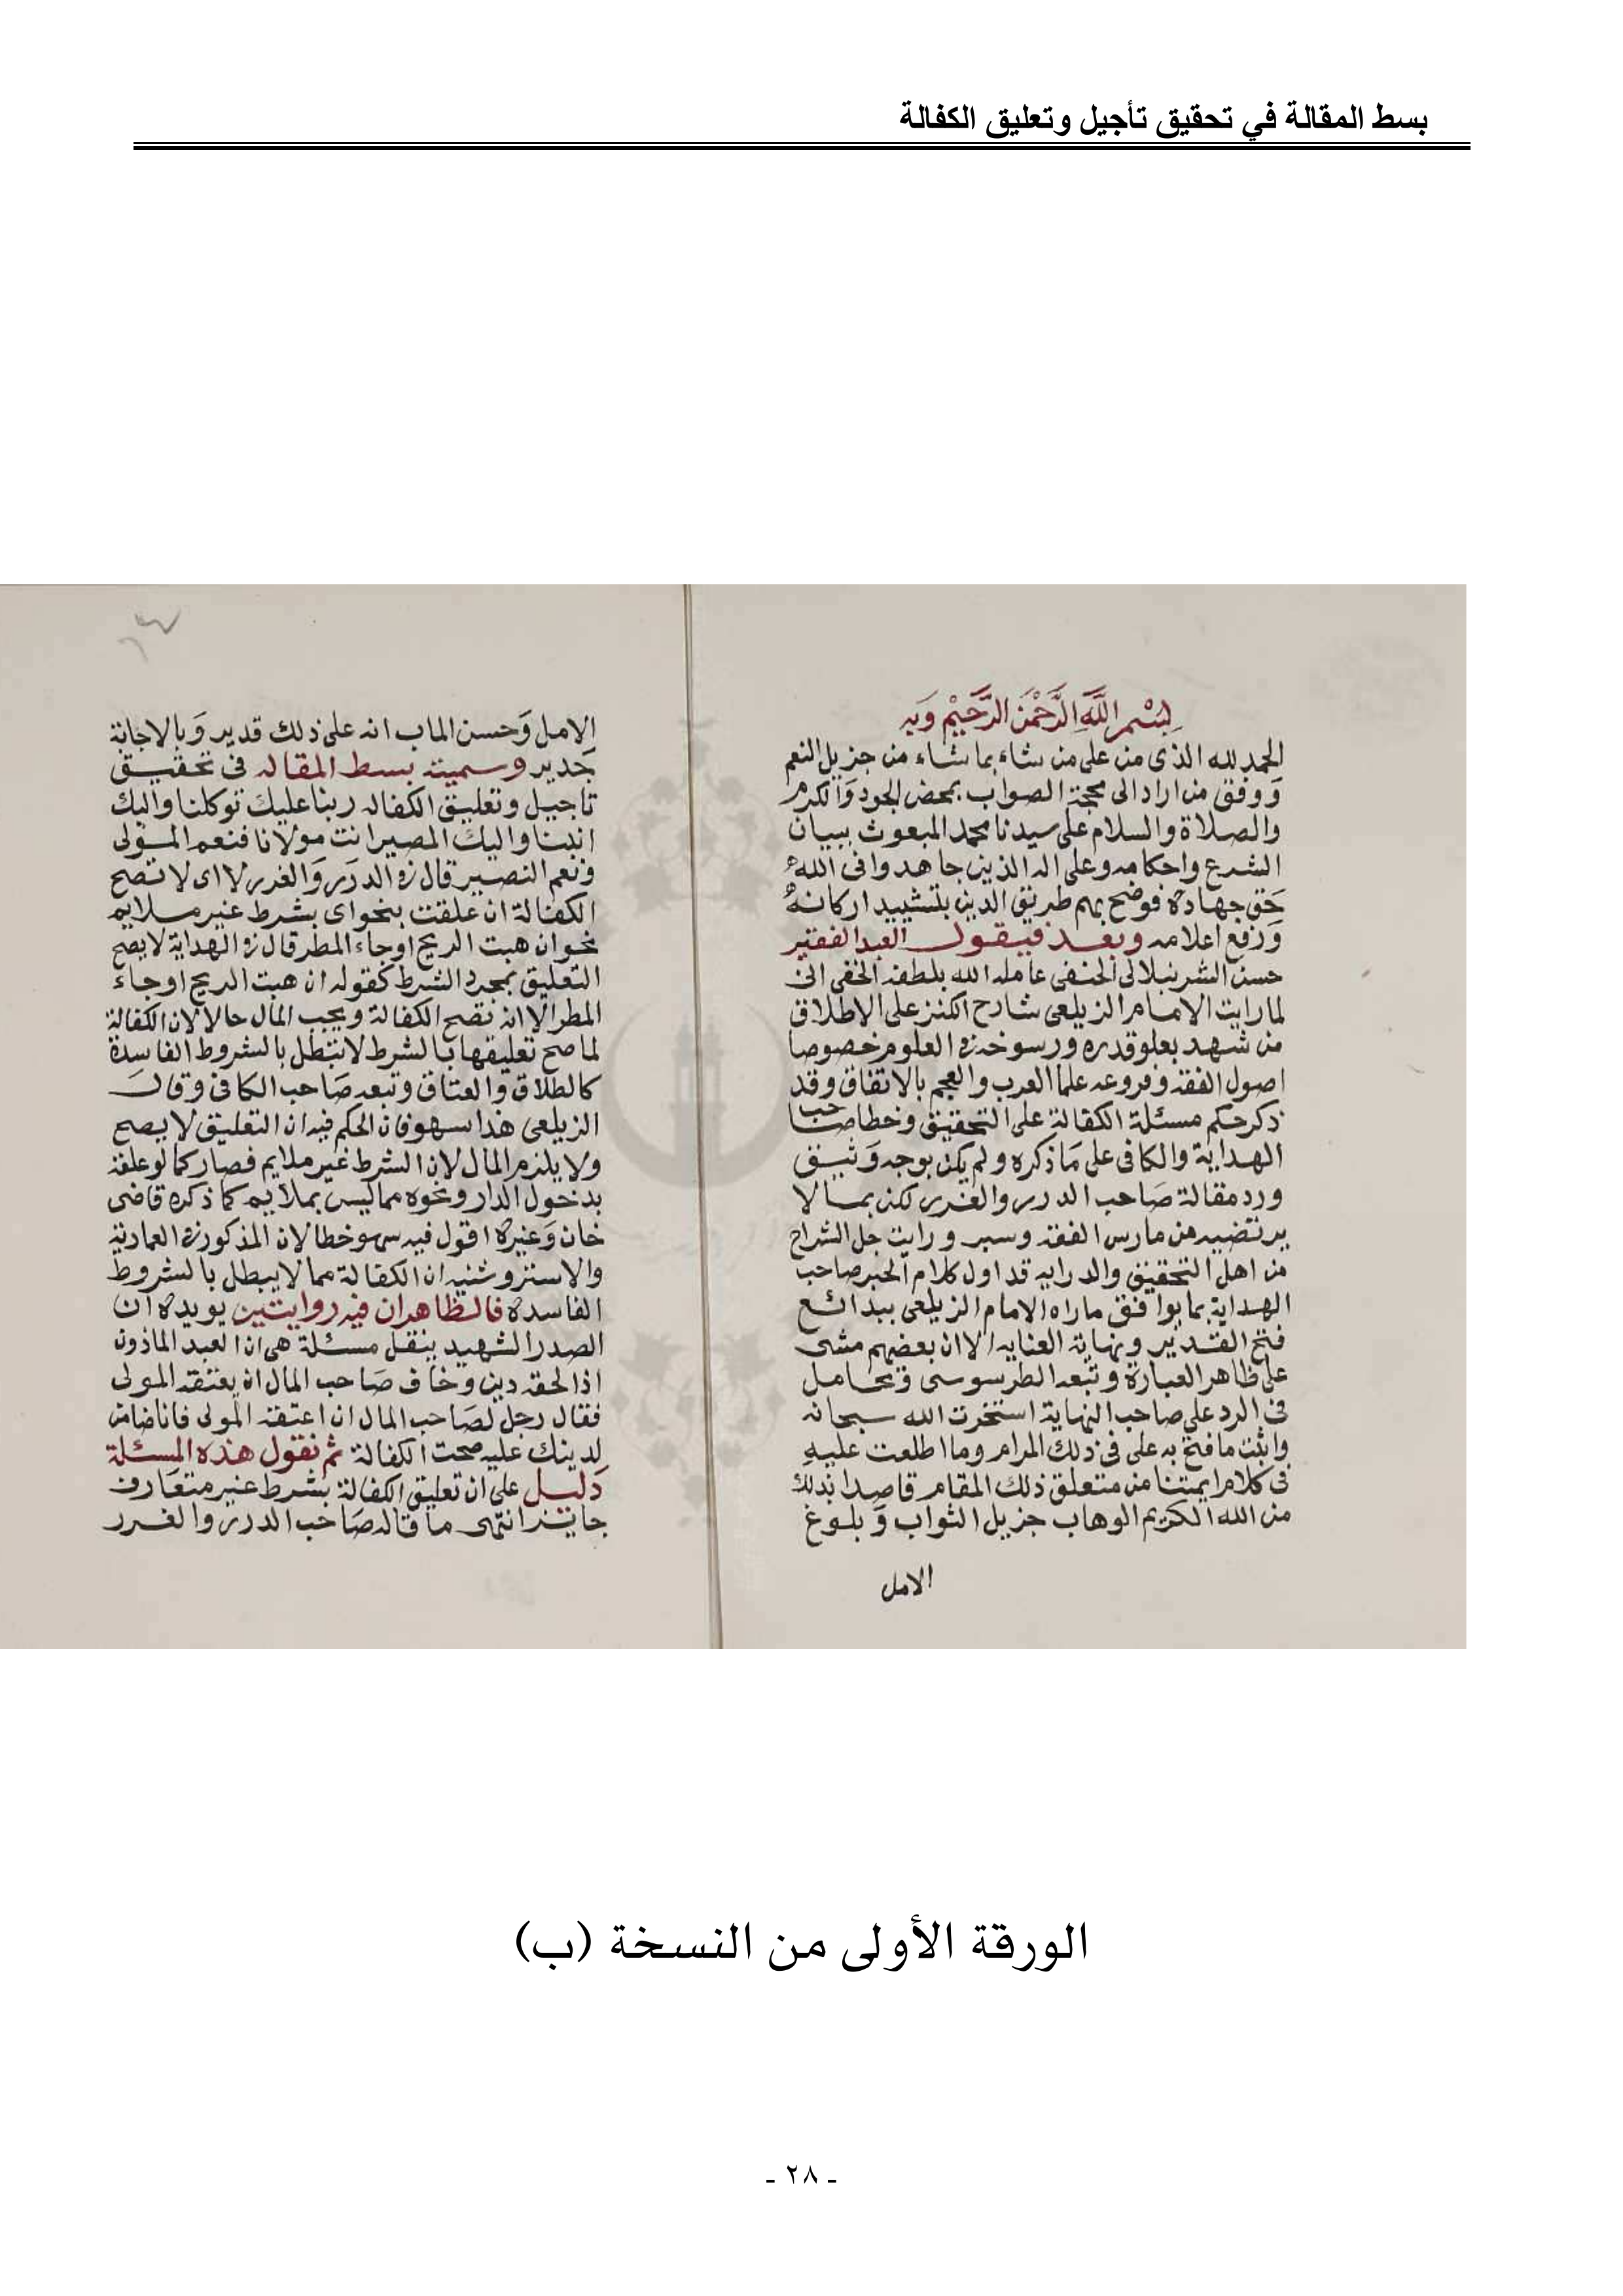 بسط المقالة في تحقيق تأجيل وتعليق الكفالة
بِسْمِ اللَّهِ الرَّحْمَنِ الرَّحِيمِ وَبِهِ
الحمد لله الذى من على من شاء بما شاء من جزيل النعم
وَوفق من اراد الى محجة الصواب بمحض الجود وَالكرم
والصلاة والسلام على سيدنا محمد المبعوث ببيان
الشرع واحكامه وعلى اله الذين جاهدوا فى الله
حَق جهاده فوضح بهم طريق الدين بتشييد اركانه
وَرفع اعلامه وبعد فيقول العبد الفقير
حسن الشرنبلالى الحنفى عامله الله بلطفه الخفى انى
لما رايت الامام الزيلعى شارح الكنز على الاطلاق
من شهد بعلو قدره ورسوخه فى العلوم خصوصا
اصول الفقه وفروعه علما العرب والعجم بالاتفاق وقد
ذكر حكم مسئلة الكفالة على التحقيق وخطا صاحب
الهداية والكافى على مَا ذكره ولم يكن بوجه وَثيق
ورد مقالة صَاحب الدرر والغرر لكن بما لا
يرتضيه من مارس الفقه وسبر ورايت جل الشراح
من اهل التحقيق والدرايه قد اول كلام الحبر صاحب
الهداية بما يوافق ماراه الامام الزيلعى ببدائع
فتح القدير ونهاية العنايه الا ان بعضهم مشى
على ظاهر العبارة وتبعه الطرسوسى وتحامل
فى الرد على صاحب النهاية استخرت الله سبحانه
واثبت ما فتح به على فى ذلك المرام وما اطلعت عليه
فى كلام ايمتنا من متعلق ذلك المقام قاصدا بذلك
من الله الكريم الوهاب جزيل الثواب وَبلوغ
الامل
الامل وَحسن الماب انه على ذلك قدير وَبالاجابة
جَدير وسميته بسط المقاله فى تحقيق
تاجيل وتعليق الكفاله ربنا عليك توكلنا واليك
انبنا واليك المصير انت مولانا فنعم المولى
ونعم النصير قال فى الدرر وَالغرر لا اى لا تصح
الكفالة ان علقت بنحو اى بشرط غير ملايم
نحو ان هبت الريح او جاء المطر قال فى الهداية لا يصح
التعليق بمجرد الشرط كقوله ان هبت الريح او جاء
المطر الا انه تصح الكفالة ويجب المال حالا لان الكفالة
لما صح تعليقها بالشرط لا تبطل بالشروط الفاسدة
كالطلاق والعتاق وتبعه صَاحب الكافى وقال
الزيلعى هذا سهو فان الحكم فيه ان التعليق لا يصح
ولا يلزم المال لان الشرط غير ملايم فصار كما لو علقه
بدخول الدار ونحوه مما ليس بملايم كما ذكره قاضى
خان وَغيره اقول فيه سهو خطا لان المذكور فى العمادية
والاستروشنيه ان الكفالة مما لا يبطل بالشروط
الفاسده فالظاهر ان فيه روايتين يويده ان
الصدر الشهيد ينقل مسئلة هى ان العبد الماذون
اذا لحقه دين وخاف صَاحب المال ان يعتقه المولى
فقال رجل لصَاحب المال ان اعتقه المولى فانا ضامن
لدينك عليه صحت الكفالة ثم نقول هذه المسئلة
دَليل على ان تعليق الكفالة بشرط غير متعَارف
جايز انتهى ما قاله صَاحب الدرر والغرر
الورقة الأولى من النسخة (ب)
- ٢٨ -